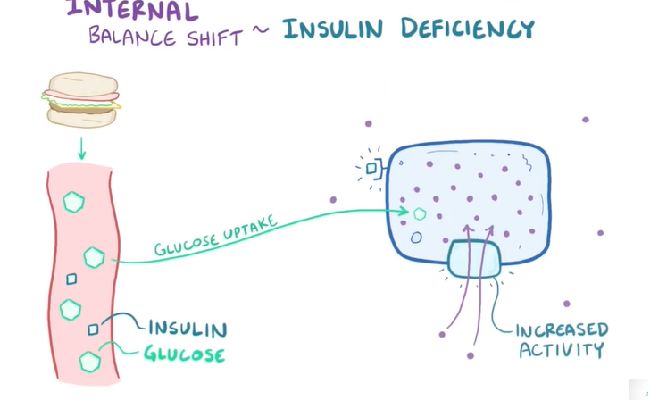 INTERNAL
BALANCE SHIFT ~ INSULIN DEFICIENCY
GLUCOSE UPTAKE
INSULIN
GLUCOSE
INCREASED
ACTIVITY